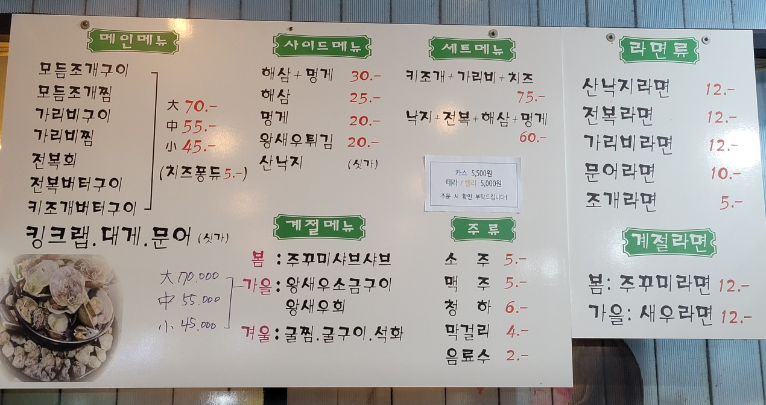 메인메뉴
모듬조개구이
모듬조개찜
가리비구이
가리비찜
전복회
전복버터구이
키조개버터구이
大 70.-
中 55.-
小 45.-
(치즈퐁듀 5.-)
킹크랩.대게.문어 (싯가)
大 70,000
中 55,000
小 45,000
사이드메뉴
해삼+멍게 30.-
해삼 25.-
멍게 20.-
왕새우튀김 20.-
산낙지 (싯가)
세트메뉴
키조개+가리비+치즈
75.-
낙지+전복+해삼+멍게
60.-
카스 5,500원
테라 / 켈리 5,000원
주문 시 확인 부탁드립니다!
계절메뉴
봄 : 주꾸미샤브샤브
가을 : 왕새우소금구이
왕새우회
겨울 : 굴찜.굴구이.석화
주류
소주 5.-
맥주 5.-
청하 6.-
막걸리 4.-
음료수 2.-
라면류
산낙지라면 12.-
전복라면 12.-
가리비라면 12.-
문어라면 10.-
조개라면 5.-
계절라면
봄: 주꾸미라면 12.-
가을: 새우라면 12.-